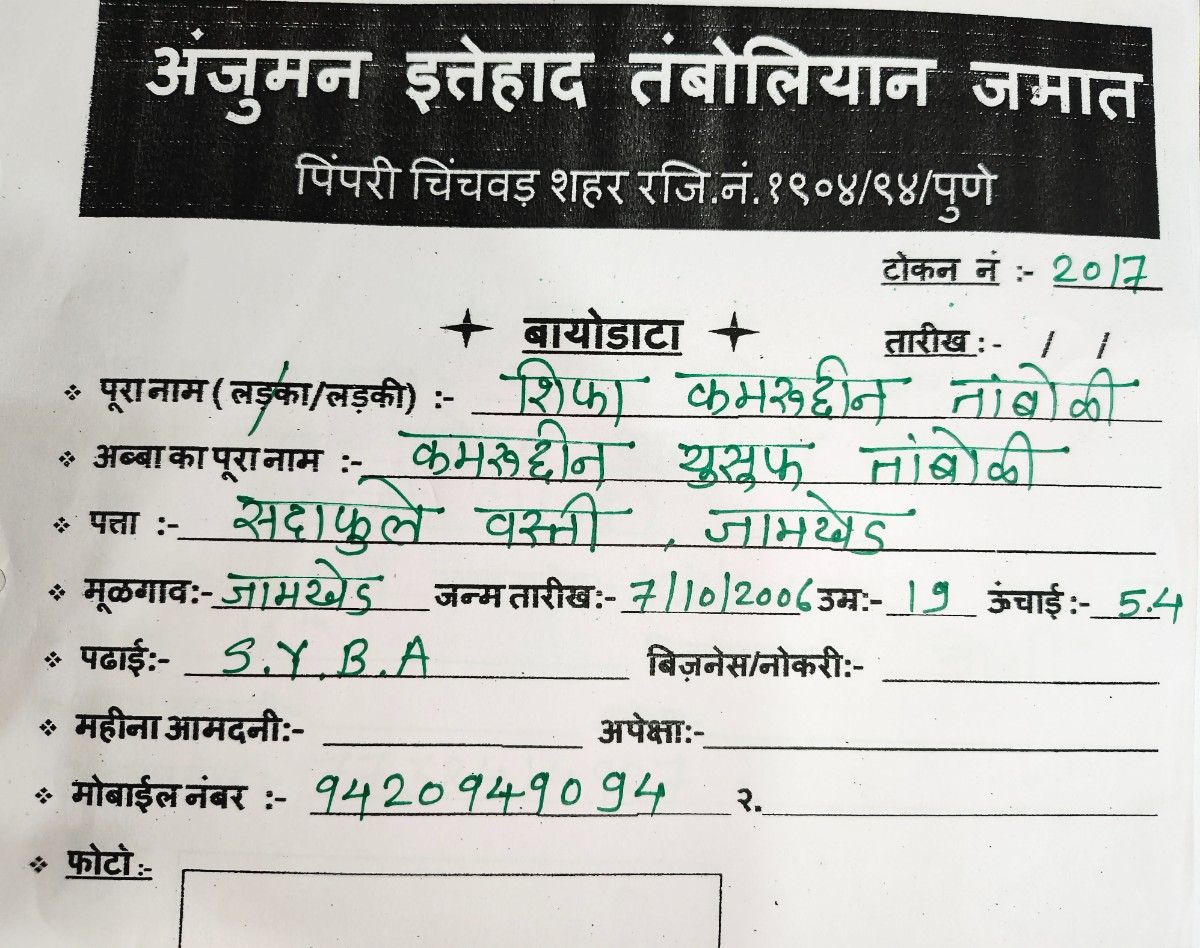 अंजुमन इत्तेहाद तंबोलियान जमात
पिंपरी चिंचवड़ शहर रजि.नं.१९०४/९४/पुणे
टोकन नं :- 2017
बायोडाटा
तारीख :- / /
पूरा नाम ( लड़का/लड़की) :- शिफा कमरूद्दीन तांबोळी
अब्बा का पूरा नाम :- कमरूद्दीन युसूफ तांबोळी
पत्ता :- सदाफुले वस्ती , जामखेड
मूळगाव:- जामखेड जन्म तारीख:- 7/10/2006 उम्र:- 19 ऊंचाई :- 5.4
पढाई:- S.Y.B.A बिज़नेस/नोकरी:-
महीना आमदनी:- अपेक्षा:-
मोबाईल नंबर :- 9420949094 २.
फोटो :-